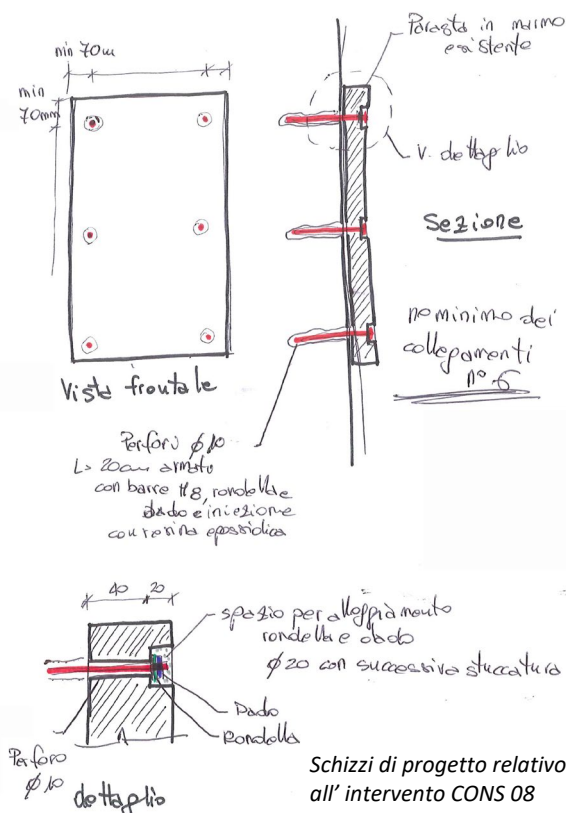 min 70m
min
70mm
Vista frontale
Parasta in marmo
esistente
V. dettaglio
Sezione
no minimo dei
collegamenti
n° 6
Perforo φ10
L> 20cm armato
con barre M8, rondella e
dado e iniezione
con resina epossidica
40 20
spazio per alloggiamento
rondella e dado
φ20 con successiva stuccatura
Dado
Rondella
Perforo
φ10
dettaglio
Schizzi di progetto relativo
all' intervento CONS 08